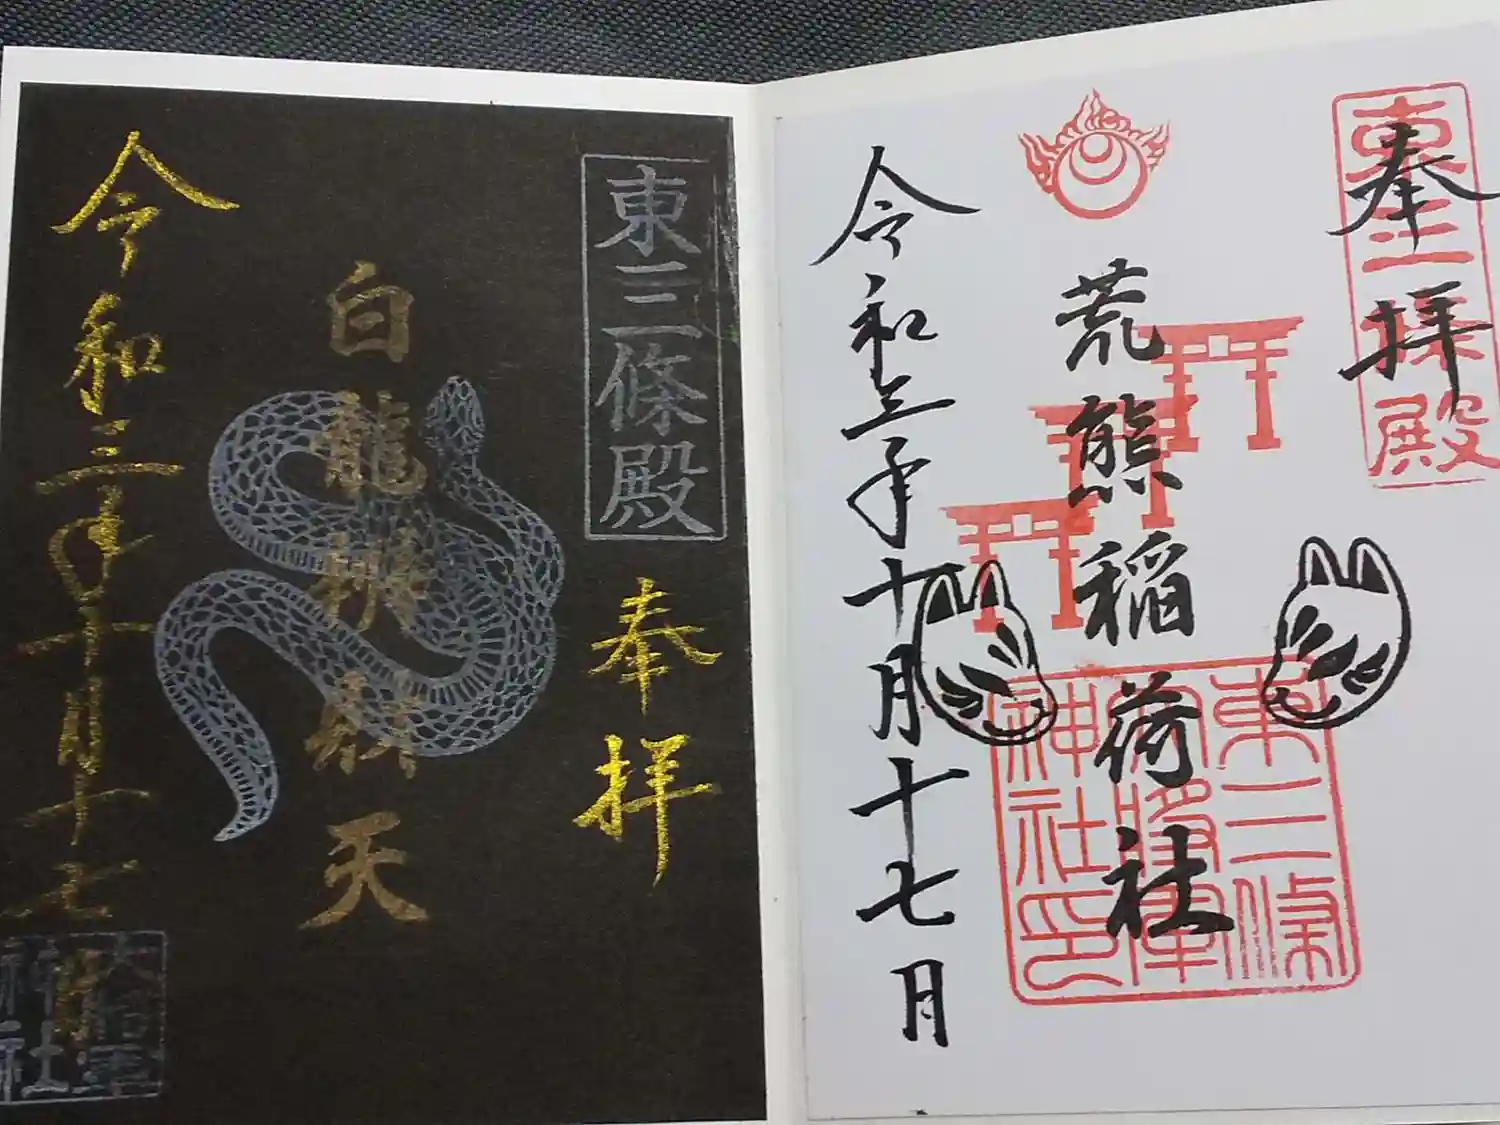 東三條殿
奉拝
荒熊稲荷社
東三條
大将軍
神社印
令和三年十月十七日
東三條殿
奉拝
白龍辨財天
令和三年十月十七日
大将軍
神社